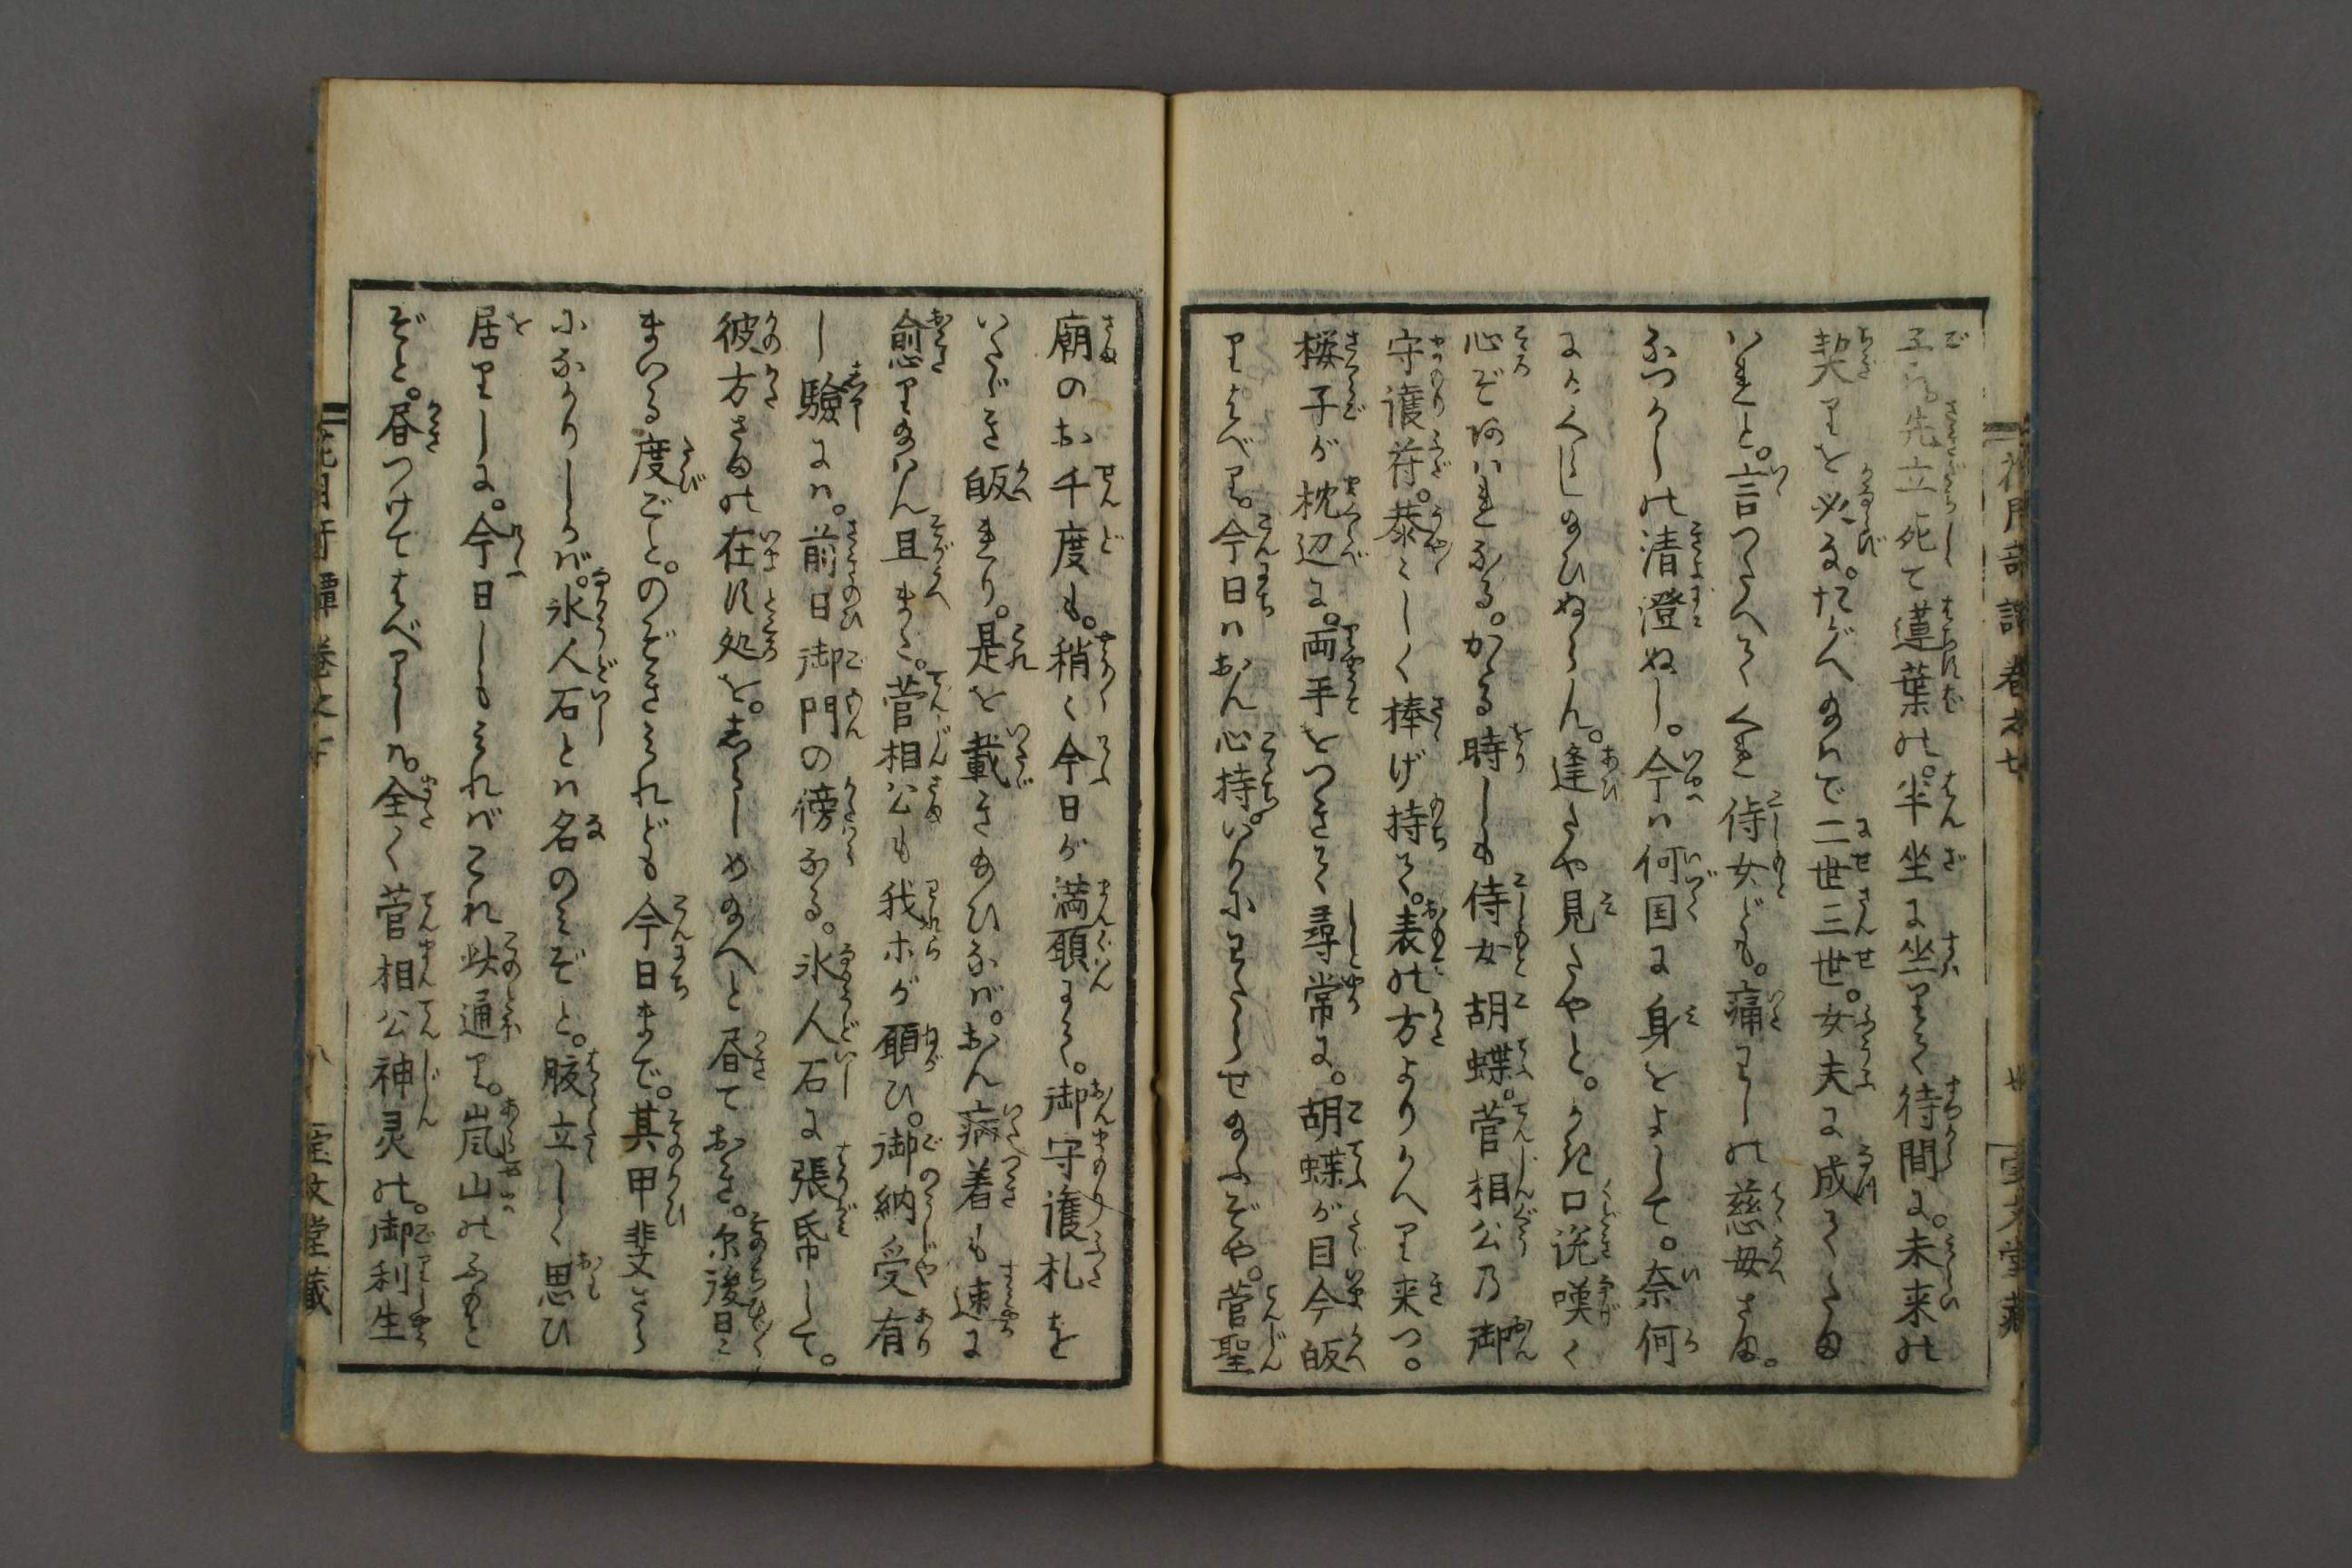 五ツ。先立死て蓮葉の。半坐に坐りて待間に。未来の
契りを必るな。たがへ給はで二世三世。女夫に成てたま
はれと。言つたへてくれ侍女ども。痛はしの慈母さま。
なつかしの清澄ぬし。今は何国に身をよして。奈何
にくらし給ひぬらん。逢たや見たやと。かき口説嘆く
心ぞあはれなる。かゝる時しも侍女胡蝶。菅相公の御
守護符。恭しく捧げ持て。表の方よりかへり来つ。
桜子が枕辺に。両手をつきて尋常に。胡蝶が目今皈
りはべり。今日はおん心持。いかにわたらせ給ふぞや。菅聖
廟のお千度も。稍々今日が満願にて。御守護札を
いたゞき皈れり。是を載き給ひなば。おん病着も速に
愈り給はん且また。菅相公も我ホが願ひ。御納受有
し験には。前日御門の傍なる。氷人石に張帋して。
彼方さまの在す処を。志らしめ給へと昏ておき。尓後日々
まいる度ごと。のぞきみれども今日まで。其甲斐さら
になかりしかば。氷人石とは名のみぞと。腹立しく思ひ
居りしに。今日しもみればこれ此通り。嵐山のふもと
ぞと。昏つけてはべりしは。全く菅相公神灵の。御利生
宝文堂蔵